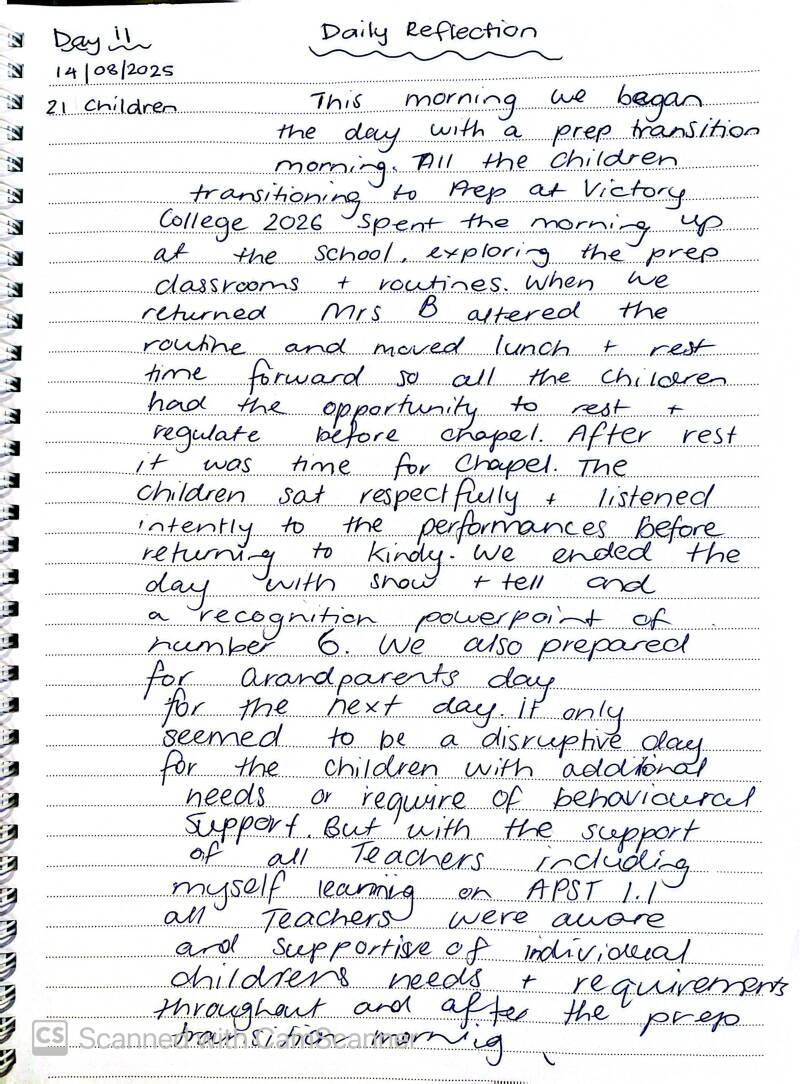 Daily Reflection
Day 11
14/08/2025
21 Children
This morning we began
the day with a prep transition
morning. All the children
transitioning to Prep at Victory
College 2026 spent the morning up
at the school, exploring the prep
classrooms + routines. When we
returned Mrs B altered the
routine and moved lunch + rest
time forward so all the children
had the opportunity to rest +
regulate before chapel. After rest
it was time for Chapel. The
children sat respectfully + listened
intently to the performances before
returning to kindy. We ended the
day with show + tell and
a recognition powerpoint of
number 6. We also prepared
for Grandparents day
for the next day. it only
seemed to be a disruptive day
for the children with additional
needs or require of behavioural
support. But with the support
of all Teachers including
myself learning on APST 1.1
all Teachers were aware
and supportive of individual
childrens needs + requirements
throughout and after the prep
transition morning
CS Scanned with CamScanner